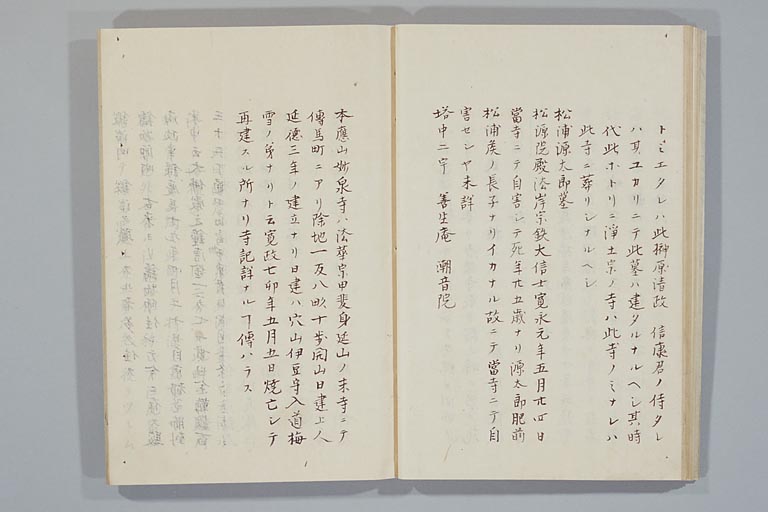 トミエタレハ此榊原清政 信康君ノ侍タレ
ハ其ユカリニテ此墓ハ建タルナルヘシ其時
代此ホトリニ浄土宗ノ寺ハ此寺ノミナレハ
此寺ニ葬リシナルヘシ
松浦源太郎墓
松源院殿法岸宗鉄大信士寛永元年五月廿四日
當寺ニテ自害シテ死年廿五歳ナリ源太郎肥前
松浦矦ノ長子ナリイカナル故ニテ當寺ニテ自
害セシヤ未詳
塔中二宇 善生庵 潮音院
本應山妙泉寺ハ法華宗甲斐身延山ノ末寺ニテ
傳馬町ニアリ除地一反八畝十歩開山日建上人
延德三年ノ建立ナリ日建ハ穴山伊豆守入道梅
雪ノ弟ナリト云寛政七卯年五月五日焼亡シテ
再建スル所ナリ寺記詳ナルヿ傳ハラス